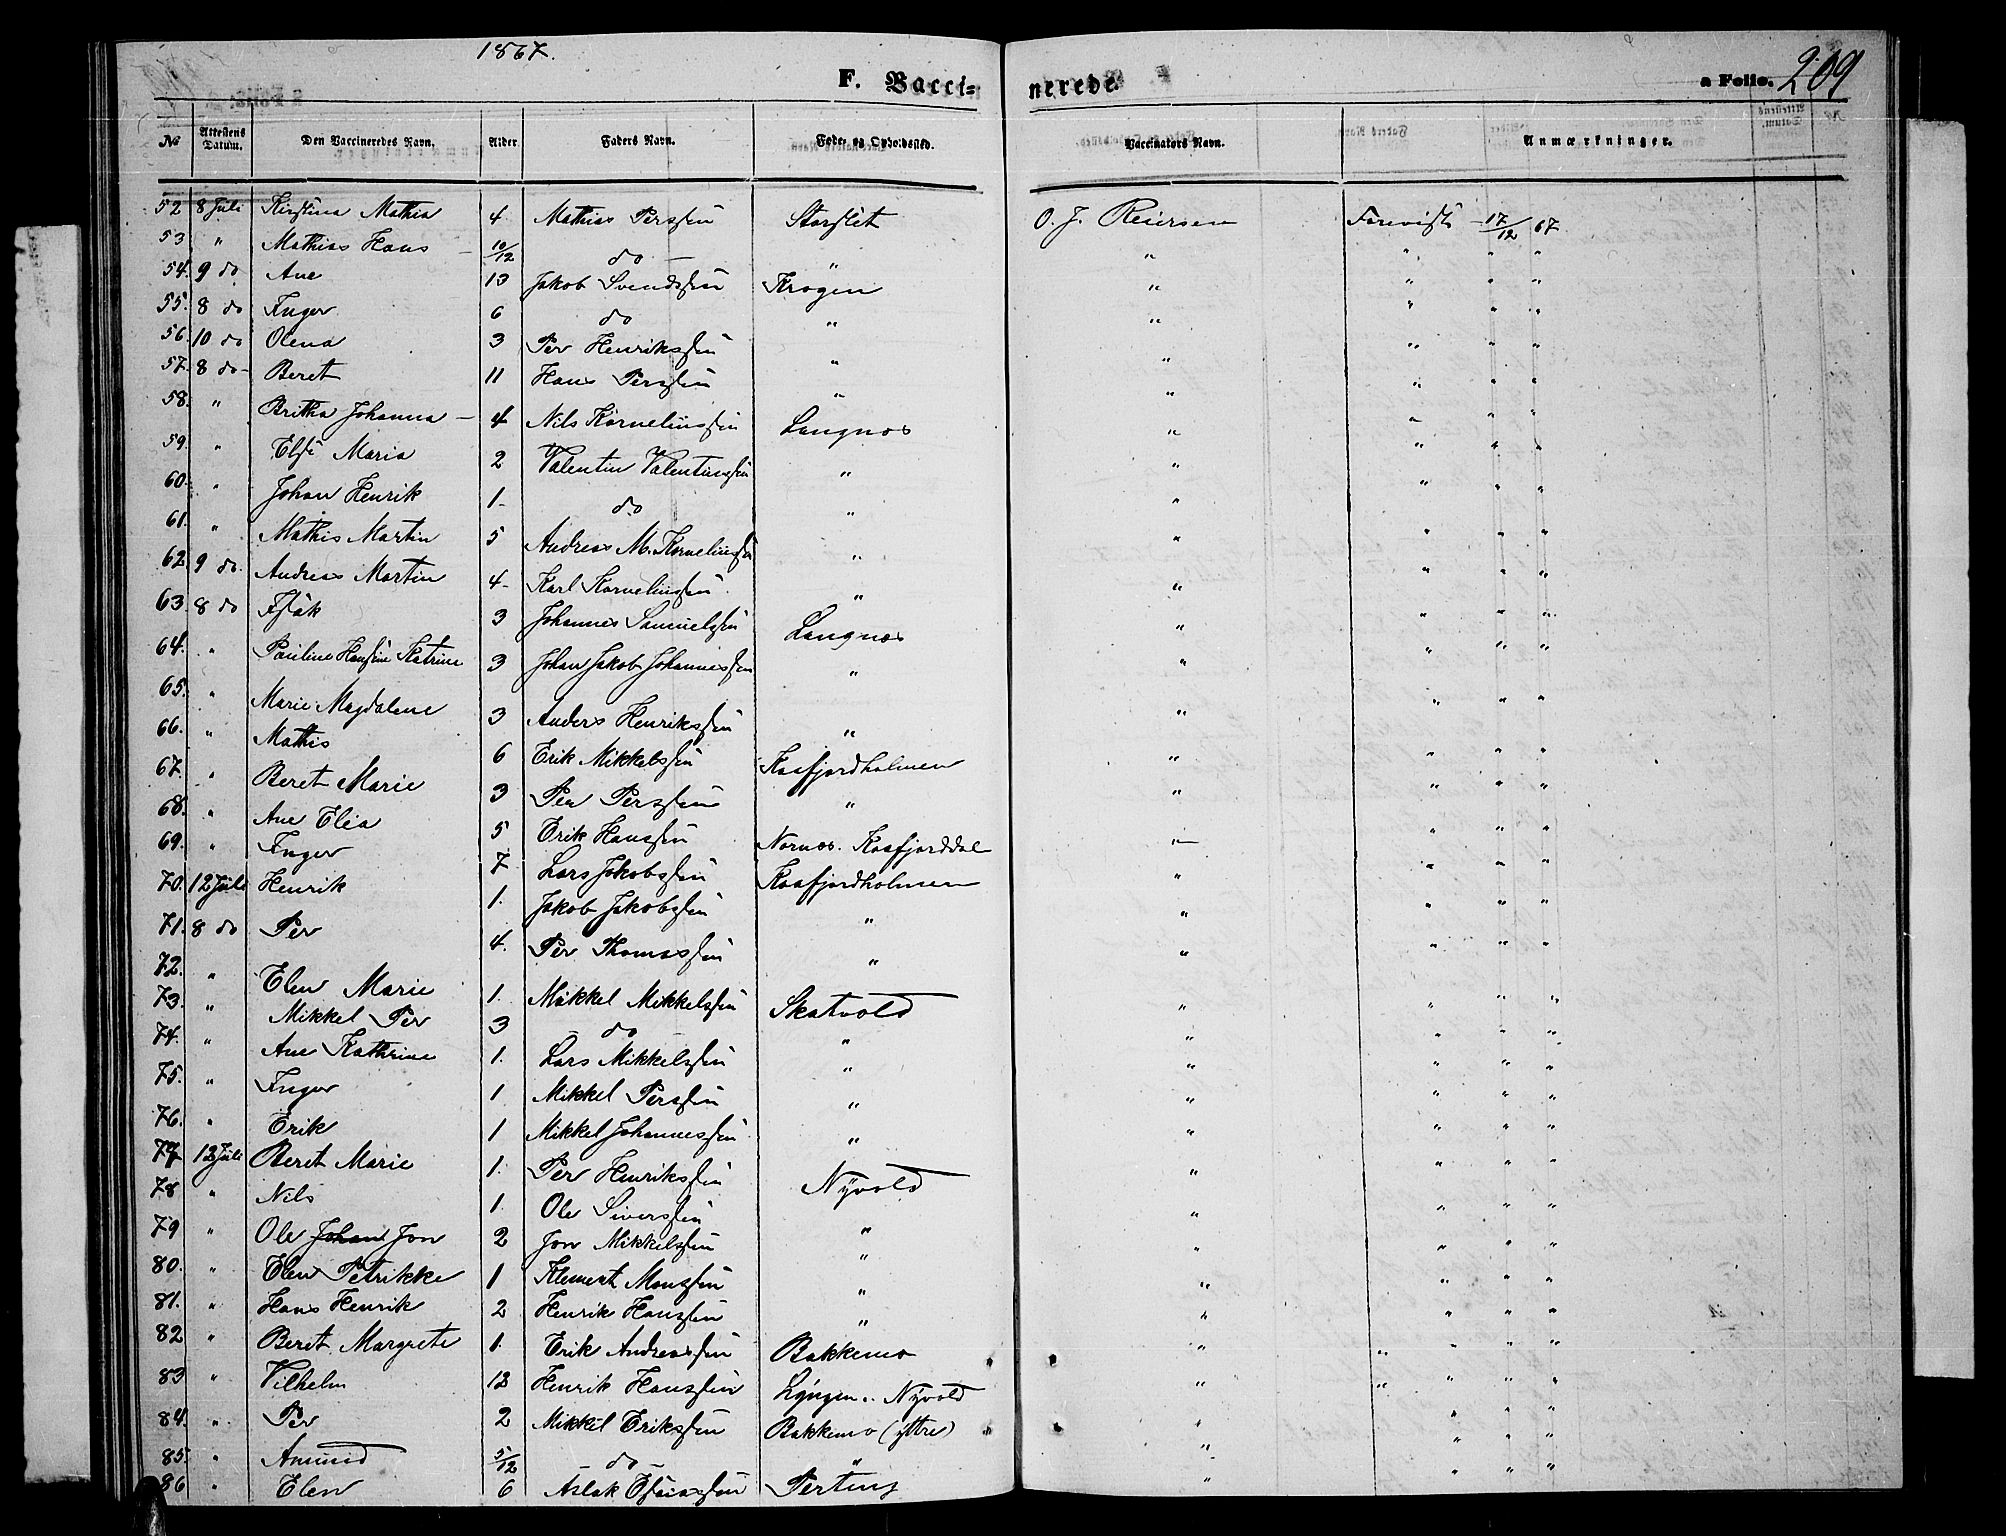 1867.
F. Vaccinerede. a Folio. 209
No Attestens Datum. Den Vaccineredes Navn. Alder. Faders Navn. Føde- og Opholdssted. Vaccinators Navn. Anmærkninger.
52 8 Juli Kirstina Mathia 4. Mathias Perssøn Storslet O. J. Reiersen Forevist 17/12 67
53 " Mathias Hans 10/12 do " " " " "
54. 9 do Ane 13 Jakob Svendssøn Krogen " " " "
55. 8 do Inger 6 do " " " " "
56. 10 do Olena 3 Per Henrikssøn " " " " "
57. 8 do Beret 11 Hans Perssøn " " " " "
58. " Britha Johanna 4 Nils Kornelinssøn Langnæs " " " "
59. " Else Maria 2 Valentin Valentinssøn " " " " "
60. " Johan Henrik 1 do " " " " "
61. " Mathis Martin 5 Andreas M. Kornelinssøn " " " " "
62. 9 do Andreas Martin 4 Karl Kornelinssøn " " " " "
63. 8 do Isak 3 Johannes Samuelssøn Langnæs " " " "
64. " Pauline Hansine Katrine 3 Johan Jakob Johannessøn " " " " "
65. " Marie Magdalene 3 Anders Henrikssøn " " " " "
66. " Mathis 6 Erik Mikkelssøn Kaafjordholmen " " " "
67. " Beret Marie 3 Per Perssøn " " " " "
68. " Ane Elia 5 Erik Hanssøn Nornæs. Kaafjorddal " " " "
69. " Inger 7 Lars Jakobssøn Kaafjordholmen " " " "
70. 12 Juli Henrik 1. Jakob Jakobssøn " " " " "
71. 8 do Per 4. Per Thomassøn " " " " "
72. " Elen Marie 1. Mikkel Mikkelssøn Skatvold " " " "
73. " Mikkel Per 3 do " " " " "
74. " Ane Kathrine 1. Lars Mikkelssøn " " " " "
75. " Inger 1 Mikkel Perssøn " " " " "
76. " Erik 1 Mikkel Johannessøn " " " " "
77 12 Juli Beret Marie 1. Per Henrikssøn Nyvold " " " "
78 " Nils 1. Ole Siverssøn " " " " "
79 " Ole Johan Jon 2 Jon Mikkelssøn " " " " "
80. " Elen Petrikke 1 Klement Monssøn " " " " "
81. " Hans Henrik 2 Henrik Hanssøn " " " " "
82 " Beret Margrete 1. Erik Andreassøn Bakkemo " " " "
83 " Vilhelm 12 Henrik Hanssøn Lyngen.. Nyvold " " " "
84. " Per 2 Mikkel Erikssøn Bakkemo (yttre) " " " "
85. " Amund 5/12 do " " " " "
86 " Elen 6 Aslak Esaiassøn Perting " " " "